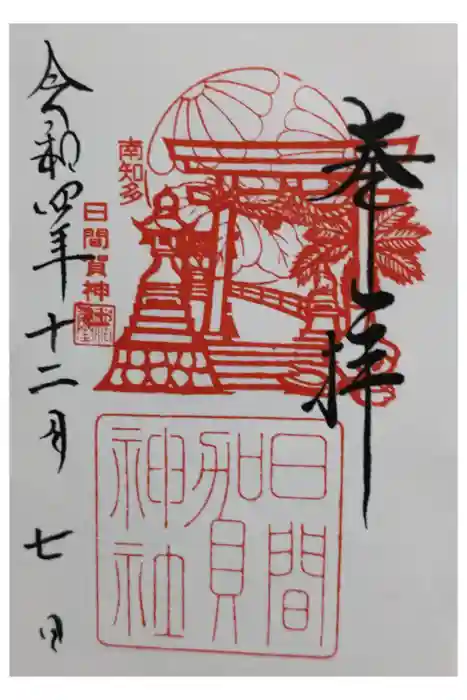 奉拝
日間賀神社
南知多
日間賀神社
令和四年十二月七日